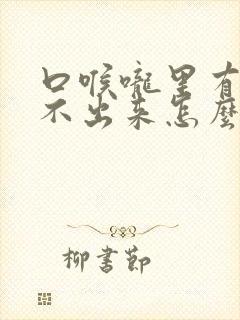 口喉嚨里有
不出来怎麼
柳書節